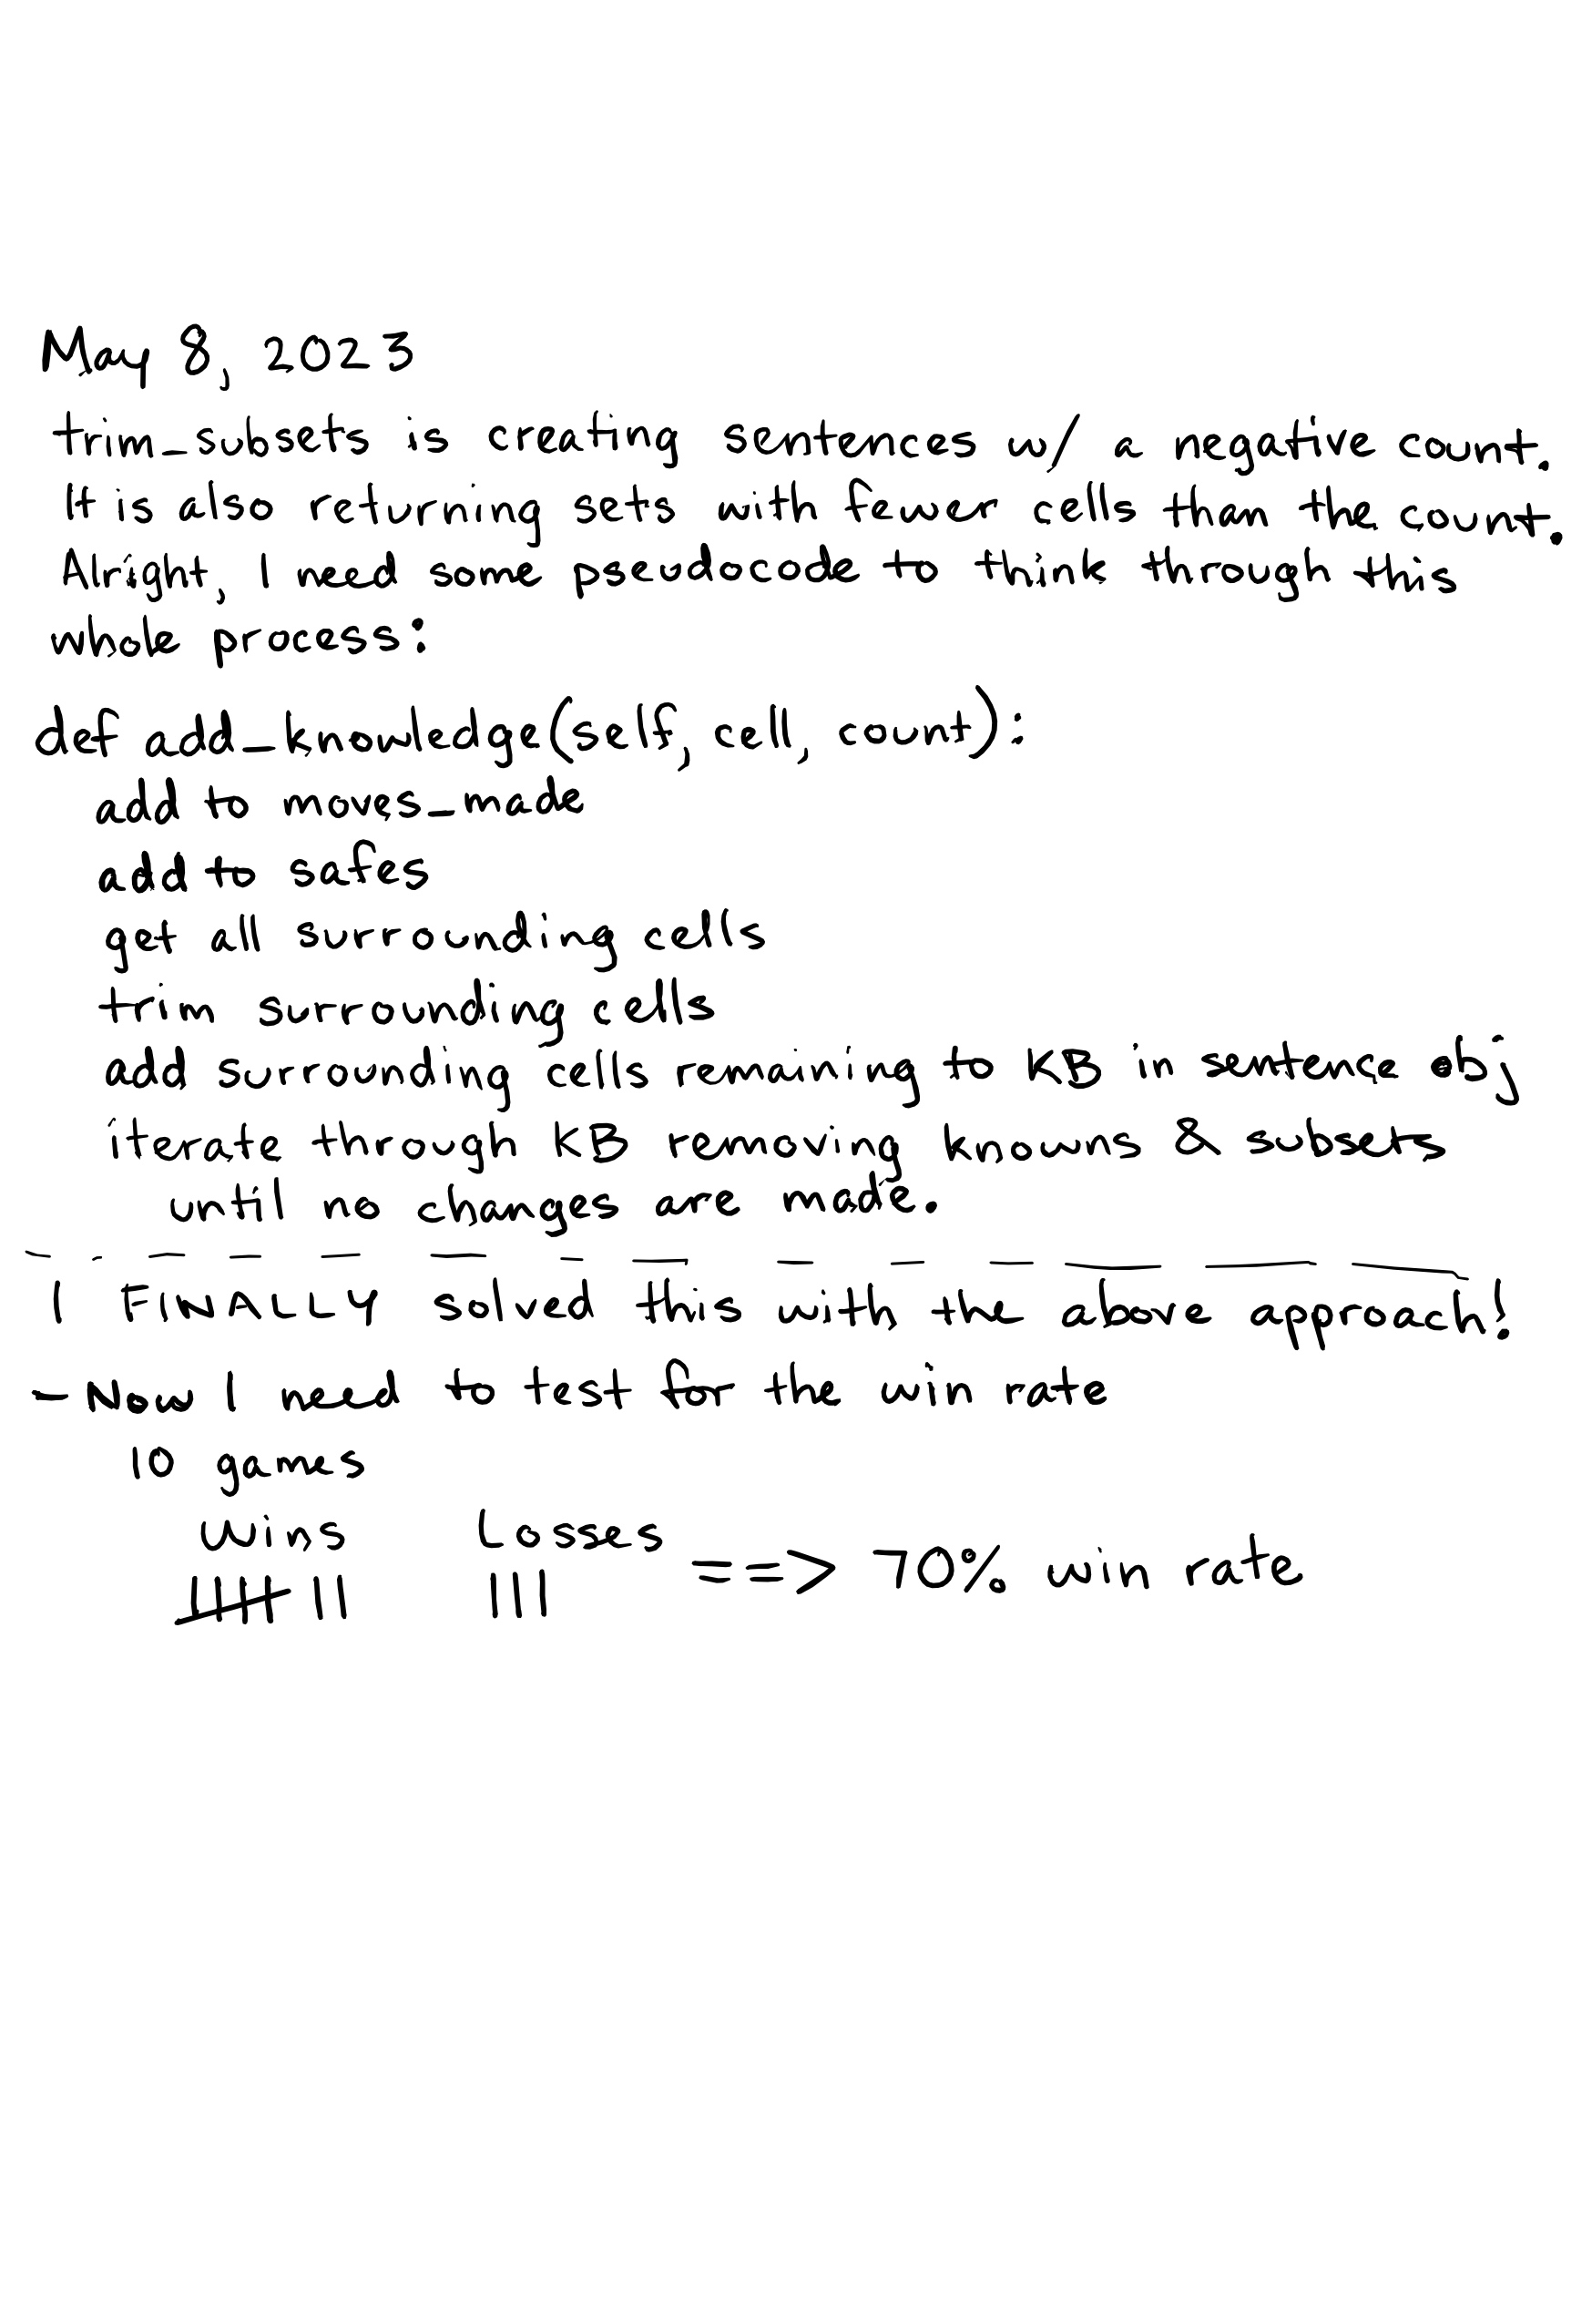 May 8, 2023
trim_subsets is creating sentences w/ a negative count.
It is also returning sets with fewer cells than the count.
Alright, I need some pseudocode to think through this
whole process:
def add_knowledge(self, cell, count):
add to moves_made
add to safes
get all surrounding cells
trim surrounding cells
add surrounding cells remaining to KB in sentence obj
iterate through KB removing knowns & subsets
until no changes are made.
I FINALLY solved this with the above approach!
- Now I need to test for the win rate
10 games
Wins Losses
==> 70% win rate